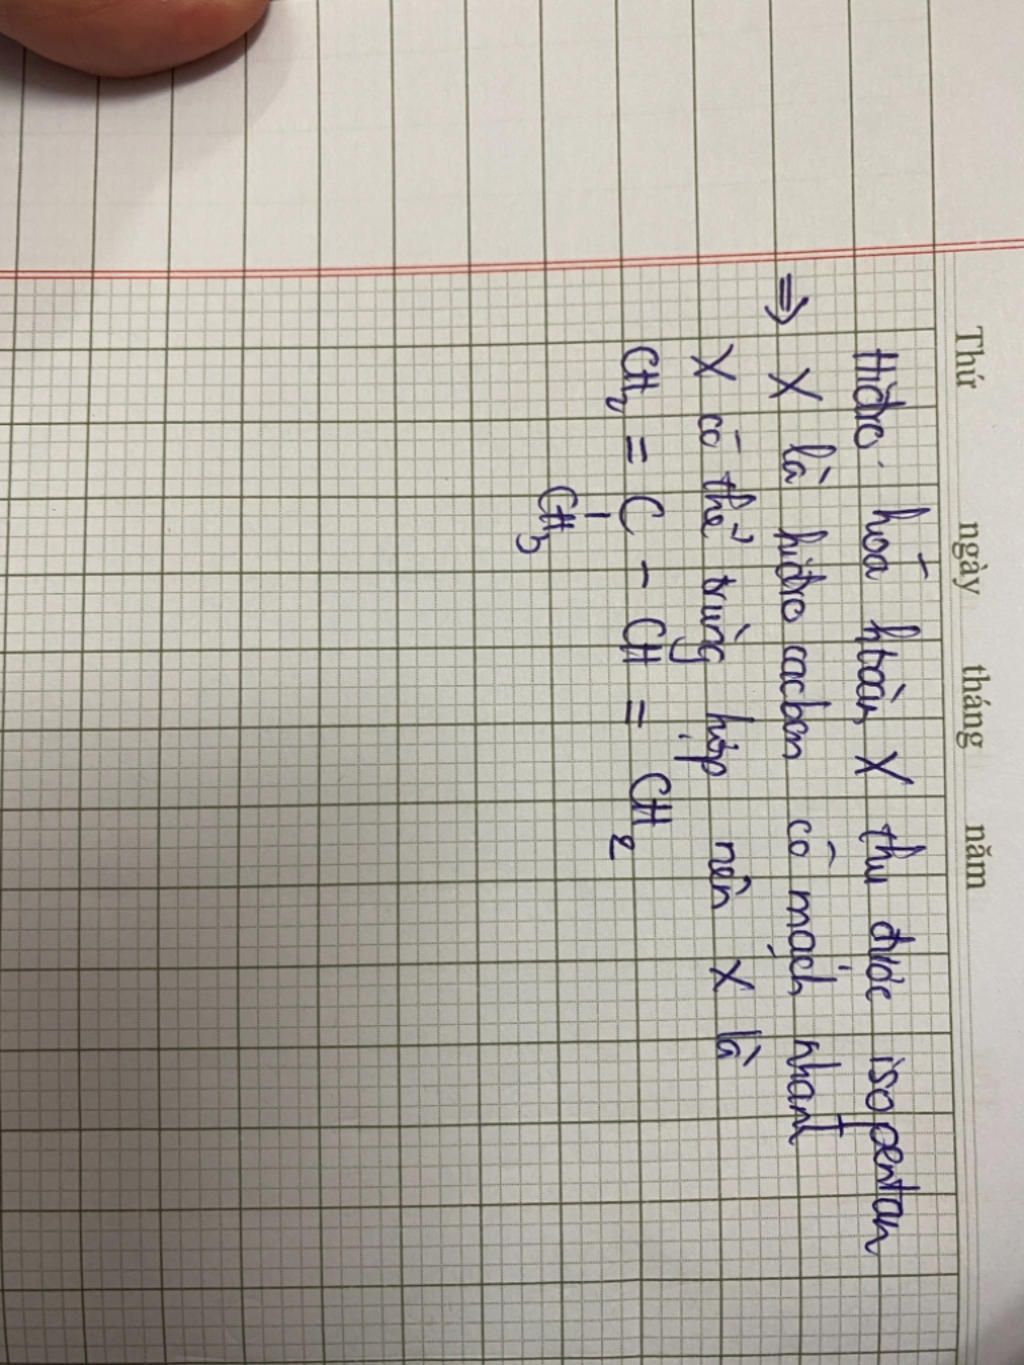 Thứ ngày tháng năm
Hiđro hoá htoàn X thu được isopentan
⇒ X là hiđro cacbon có mạch nhánh
X có thể trùng hợp nên X là
CH₂ = C - CH = CH₂
|
CH₃